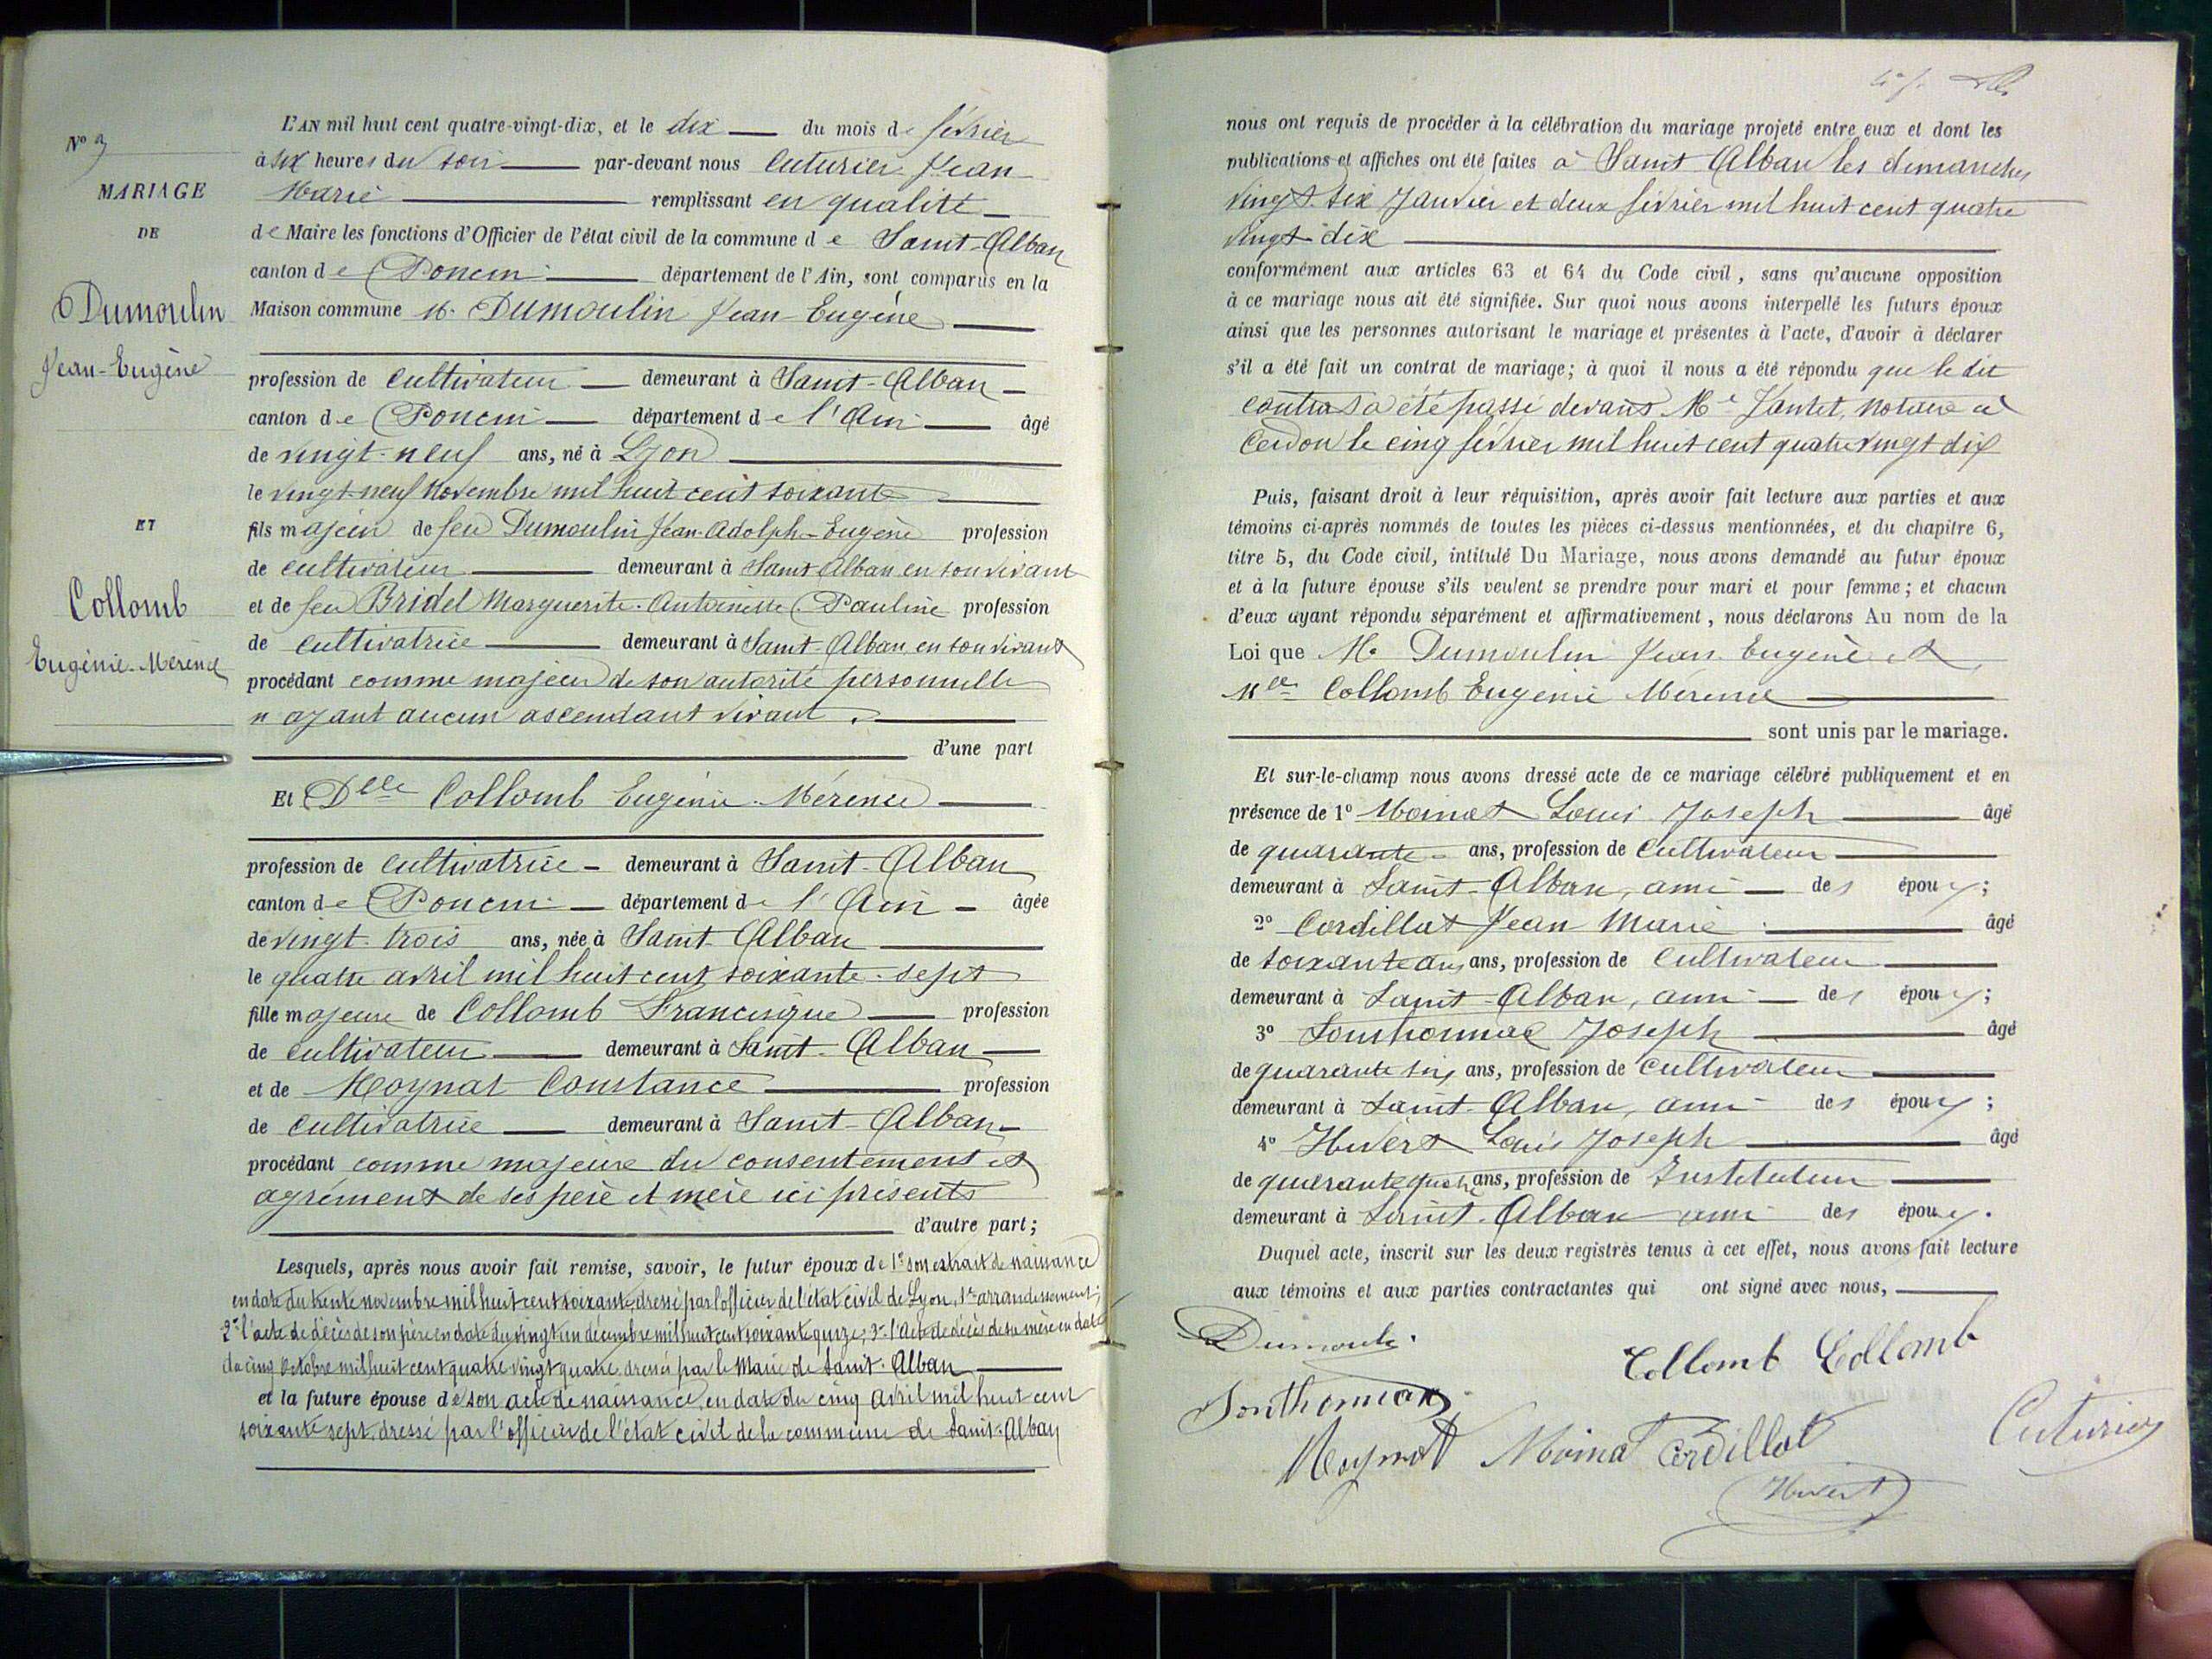 N° 3
MARIAGE
DE
Dumoulin
Jean-Eugène
ET
Collomb
Eugénie-Mérence
L'AN mil huit cent quatre-vingt-dix, et le dix du mois de février
à six heures du soir par-devant nous Cuturier Jean
Marie remplissant en qualité
de Maire les fonctions d'Officier de l'état civil de la commune de Saint-Alban
canton de Poncin département de l'Ain, sont comparus en la
Maison commune M. Dumoulin Jean-Eugène
profession de cultivateur demeurant à Saint-Alban
canton de Poncin département de l'Ain âgé
de vingt-neuf ans, né à Lyon
le vingt-neuf novembre mil huit cent soixante
fils majeur de feu Dumoulin Jean-Adolphe-Eugène profession
de cultivateur demeurant à Saint Alban en son vivant
et de feu Bridel Marguerite-Antoinette Pauline profession
de cultivatrice demeurant à Saint-Alban en son vivant
procédant comme majeur de son autorité personnelle
n'ayant aucun ascendant vivant.
d'une part
Et Delle Collomb Eugénie-Mérence
profession de cultivatrice demeurant à Saint-Alban
canton de Poncin département de l'Ain âgée
de vingt-trois ans, née à Saint-Alban
le quatre avril mil huit cent soixante-sept
fille majeure de Collomb Francisque profession
de cultivateur demeurant à Saint-Alban
et de Moynat Constance profession
de cultivatrice demeurant à Saint-Alban
procédant comme majeure du consentement et
agrément de ses père et mère ici présents
d'autre part;
Lesquels, après nous avoir fait remise, savoir, le futur époux de 1° son extrait de naissance
en date du trente novembre mil huit cent soixante, dressé par l'officier de l'état civil de Lyon, 1er arrondissement;
2° l'acte de décès de son père en date du vingt un décembre mil huit cent soixante quinze; 3° l'acte de décès de sa mère en date
du cinq octobre mil huit cent quatre-vingt quatre dressés par le Maire de Saint-Alban
et la future épouse de son acte de naissance, en date du cinq avril mil huit cent
soixante sept, dressé par l'officier de l'état civil de la commune de Saint-Alban
nous ont requis de procéder à la célébration du mariage projeté entre eux et dont les
publications et affiches ont été faites à Saint Alban les dimanches
vingt-six Janvier et deux février mil huit cent quatre
vingt-dix
conformément aux articles 63 et 64 du Code civil, sans qu'aucune opposition
à ce mariage nous ait été signifiée. Sur quoi nous avons interpellé les futurs époux
ainsi que les personnes autorisant le mariage et présentes à l'acte, d'avoir à déclarer
s'il a été fait un contrat de mariage; à quoi il nous a été répondu que le dit
contrat a été passé devant Me Jantet, notaire à
Cerdon le cinq février mil huit cent quatre vingt dix
Puis, faisant droit à leur réquisition, après avoir fait lecture aux parties et aux
témoins ci-après nommés de toutes les pièces ci-dessus mentionnées, et du chapitre 6,
titre 5, du Code civil, intitulé Du Mariage, nous avons demandé au futur époux
et à la future épouse s'ils veulent se prendre pour mari et pour femme; et chacun
d'eux ayant répondu séparément et affirmativement, nous déclarons Au nom de la
Loi que M. Dumoulin Jean Eugène et
Mlle Collomb Eugénie Mérence
sont unis par le mariage.
Et sur-le-champ nous avons dressé acte de ce mariage célébré publiquement et en
présence de 1° Moinat Louis Joseph âgé
de quarante ans, profession de Cultivateur
demeurant à Saint-Alban, ami des époux;
2° Cordillat Jean Marie âgé
de soixante ans, profession de Cultivateur
demeurant à Saint-Alban, ami des époux;
3° Sonthonnax Joseph âgé
de quarante six ans, profession de Cultivateur
demeurant à Saint-Alban, ami des époux;
4° Huvert Louis Joseph âgé
de quarante quatre ans, profession de Instituteur
demeurant à Saint-Alban ami des époux.
Duquel acte, inscrit sur les deux registres tenus à cet effet, nous avons fait lecture
aux témoins et aux parties contractantes qui ont signé avec nous,
Dumoulin
Collomb Collomb
Sonthonnax
Moynat Moinat Cordillat
Cuturier
Huvert